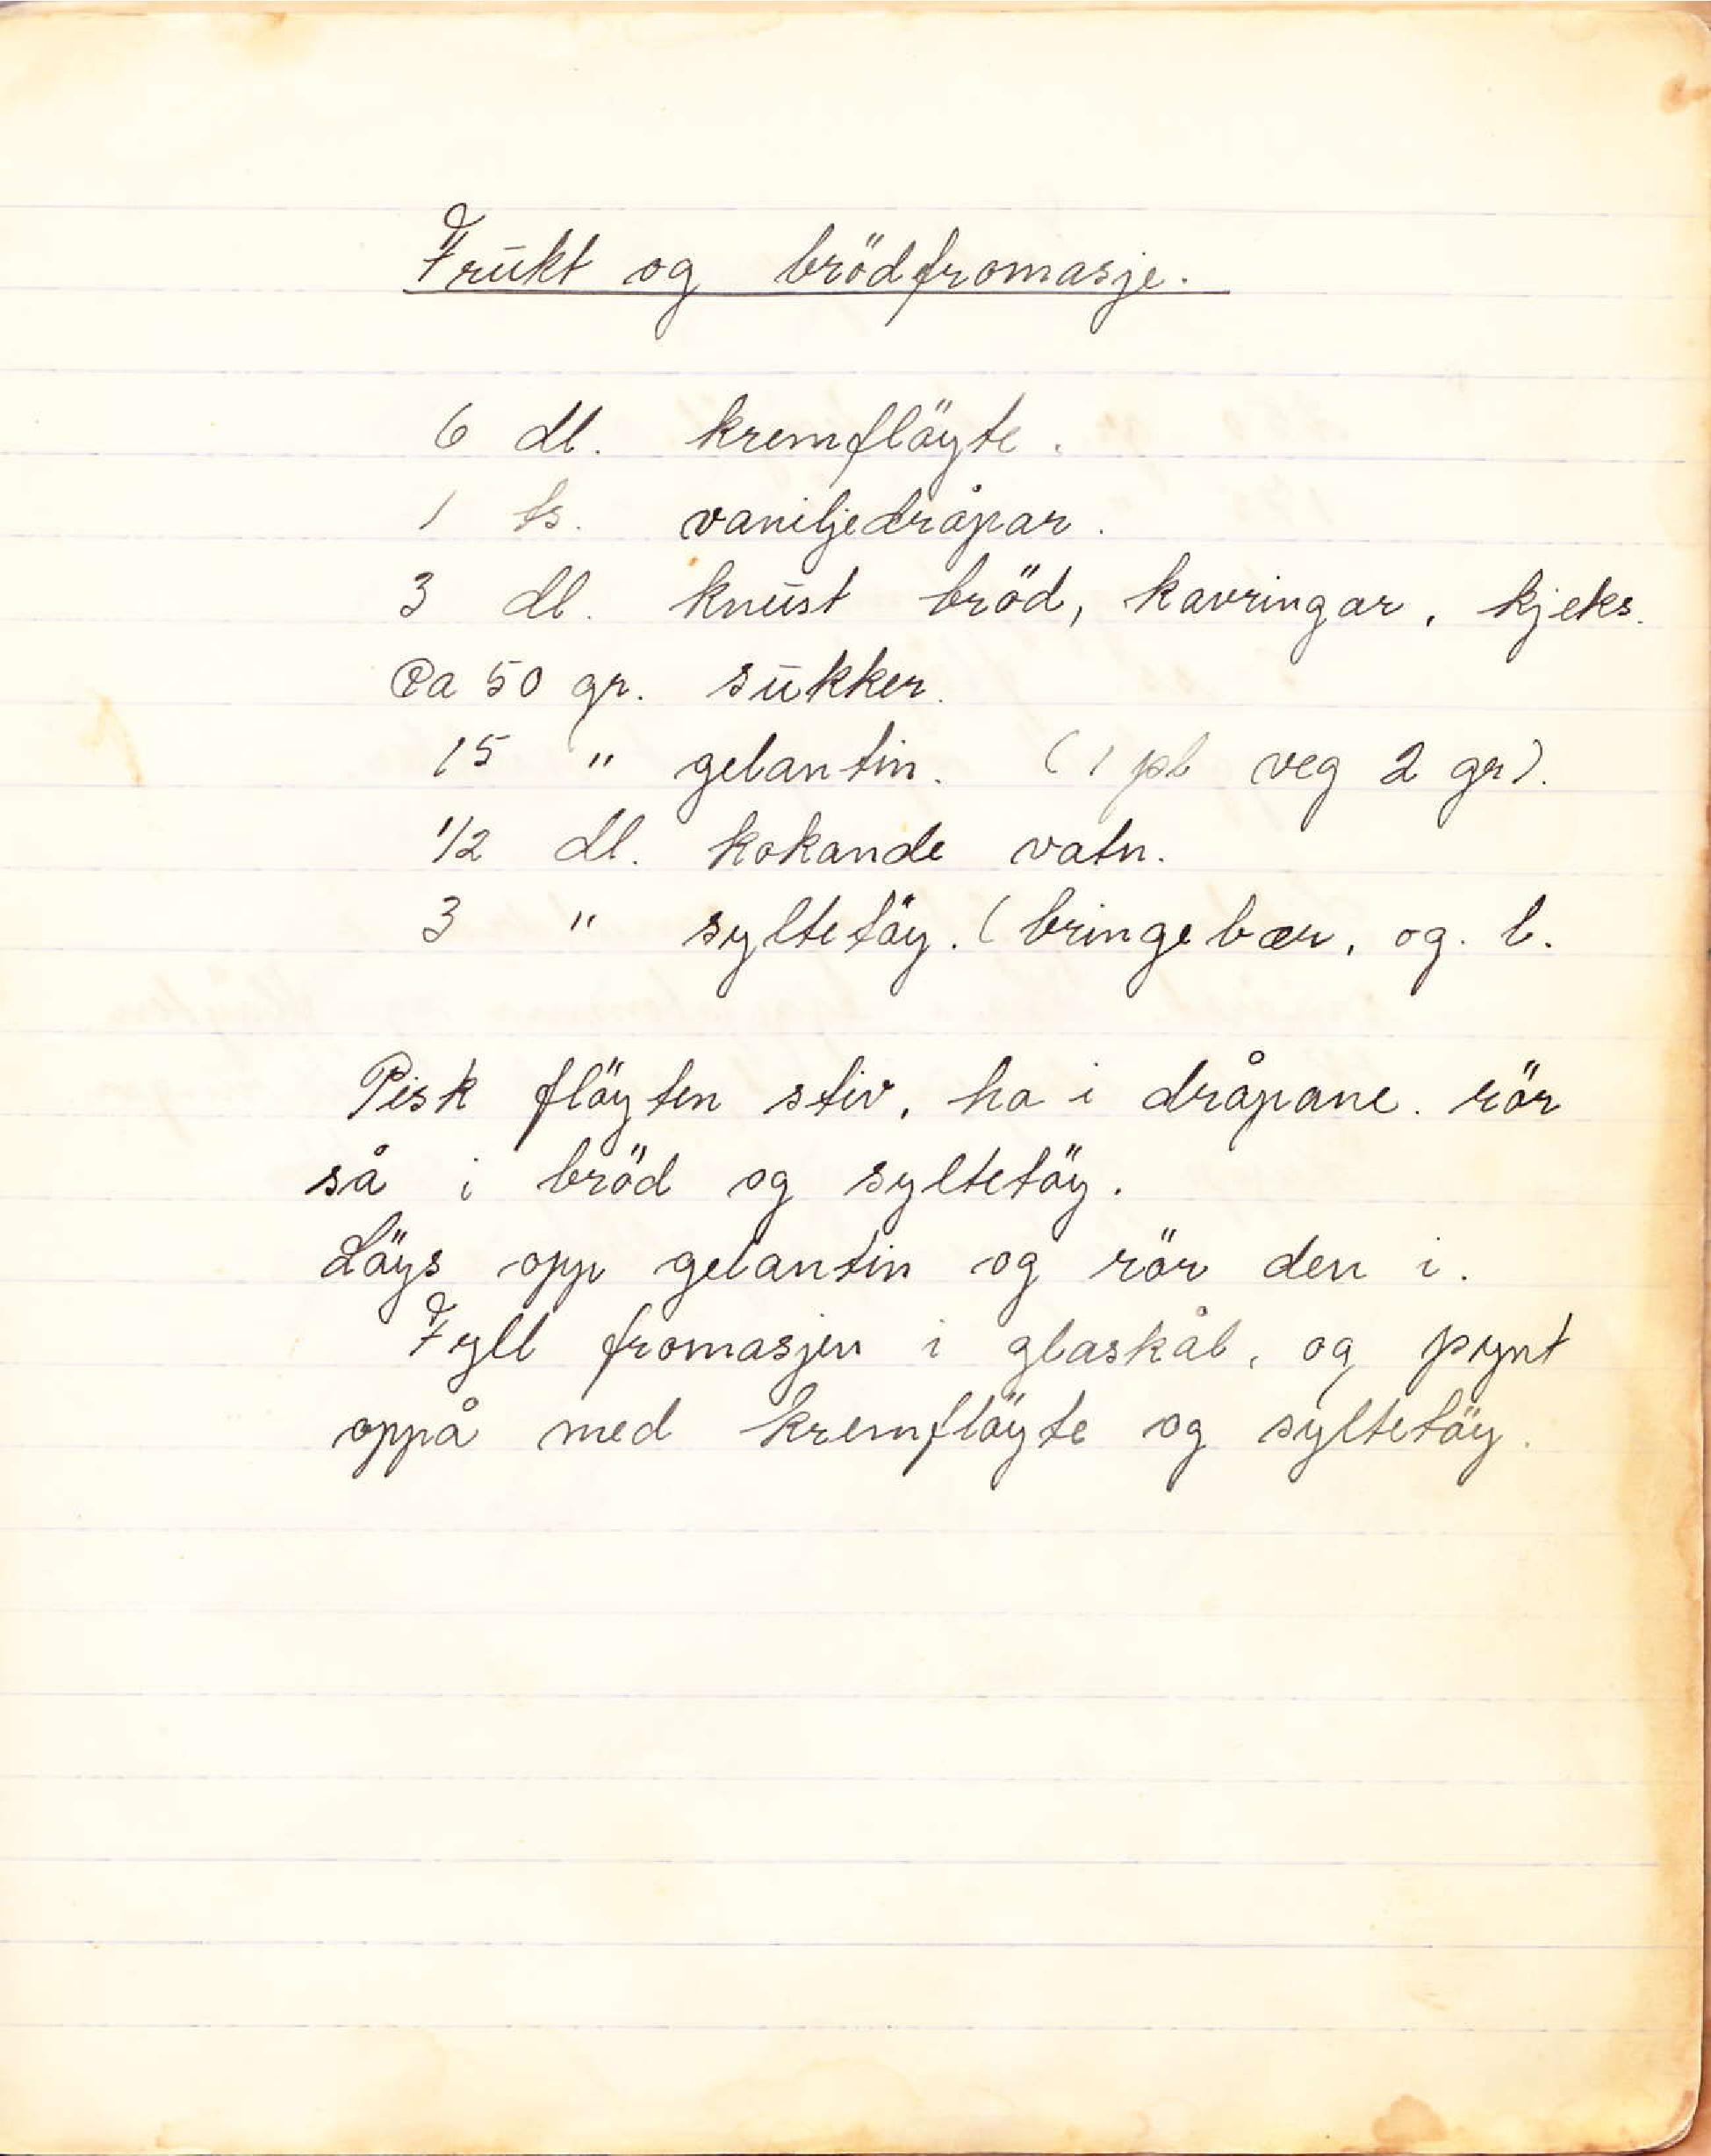 Frukt og brödfromasje.
6 dl. kremflöyte.
1 ts. vaniljedråpar.
3 dl. knust bröd, kavringar, kjeks.
Ca 50 gr. sukker.
15 " gelantin. (1 pl veg 2 gr).
1/2 dl. kokande vatn.
3 " syltetöy. (bringebær, og. l.
Pisk flöyten stiv, ha i dråpane. rör
så i bröd og syltetöy.
Löys opp gelantin og rör den i.
Fyll fromasjen i glaskål, og pynt
oppå med kremflöyte og syltetöy.